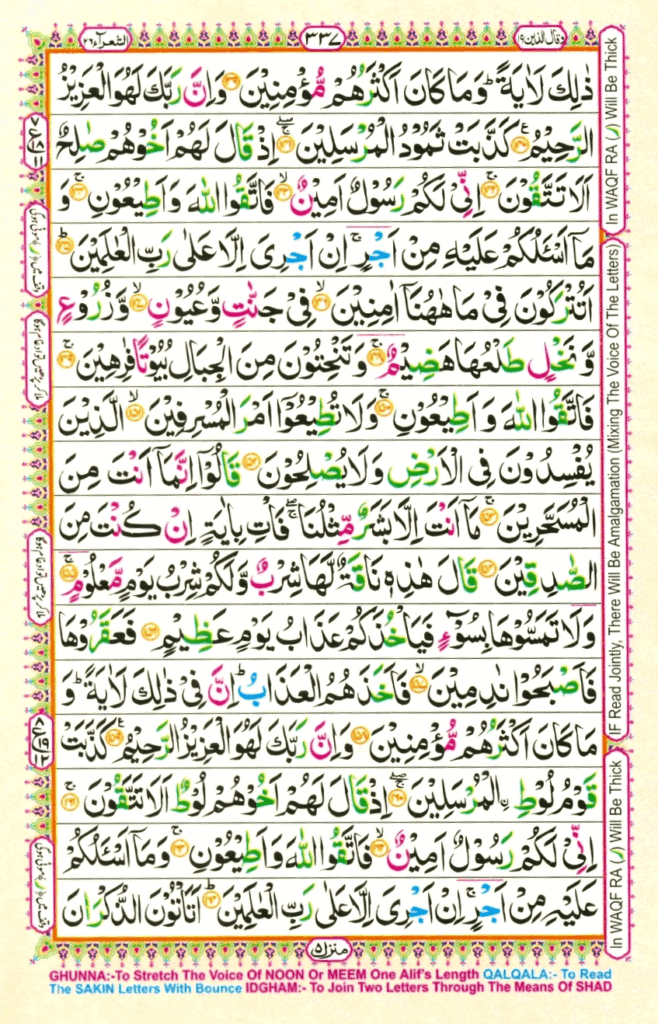 وقال الذين ١٩
٣٣٧
الشعرآء ٢٦
ذٰلِكَ لَاٰيَةً ؕ وَمَا كَانَ اَكْثَرُهُمْ مُّؤْمِنِيْنَ ﴿۱۳۹﴾ وَاِنَّ رَبَّكَ لَهُوَ الْعَزِيْزُ
الرَّحِيْمُ ﴿۱۴۰﴾ كَذَّبَتْ ثَمُوْدُ الْمُرْسَلِيْنَ ﴿۱۴۱﴾ اِذْ قَالَ لَهُمْ اَخُوْهُمْ صٰلِحٌ
اَلَا تَتَّقُوْنَ ﴿۱۴۲﴾ اِنِّيْ لَكُمْ رَسُوْلٌ اَمِيْنٌ ﴿۱۴۳﴾ فَاتَّقُوا اللّٰهَ وَاَطِيْعُوْنِ ﴿۱۴۴﴾ وَ
مَاۤ اَسْـَٔلُكُمْ عَلَيْهِ مِنْ اَجْرٍ ۚ اِنْ اَجْرِيَ اِلَّا عَلٰى رَبِّ الْعٰلَمِيْنَ ﴿۱۴۵﴾
اَتُتْرَكُوْنَ فِيْ مَا هٰهُنَاۤ اٰمِنِيْنَ ﴿۱۴۶﴾ فِيْ جَنّٰتٍ وَّعُيُوْنٍ ﴿۱۴۷﴾ وَّزُرُوْعٍ
وَّنَخْلٍ طَلْعُهَا هَضِيْمٌ ﴿۱۴۸﴾ وَتَنْحِتُوْنَ مِنَ الْجِبَالِ بُيُوْتًا فٰرِهِيْنَ ﴿۱۴۹﴾
فَاتَّقُوا اللّٰهَ وَاَطِيْعُوْنِ ﴿۱۵۰﴾ وَلَا تُطِيْعُوْۤا اَمْرَ الْمُسْرِفِيْنَ ﴿۱۵۱﴾ الَّذِيْنَ
يُفْسِدُوْنَ فِي الْاَرْضِ وَلَا يُصْلِحُوْنَ ﴿۱۵۲﴾ قَالُوْۤا اِنَّمَاۤ اَنْتَ مِنَ
الْمُسَحَّرِيْنَ ﴿۱۵۳﴾ مَاۤ اَنْتَ اِلَّا بَشَرٌ مِّثْلُنَا ۖ فَاْتِ بِاٰيَةٍ اِنْ كُنْتَ مِنَ
الصّٰدِقِيْنَ ﴿۱۵۴﴾ قَالَ هٰذِهٖ نَاقَةٌ لَّهَا شِرْبٌ وَّلَكُمْ شِرْبُ يَوْمٍ مَّعْلُوْمٍ ﴿۱۵۵﴾
وَلَا تَمَسُّوْهَا بِسُوْٓءٍ فَيَاْخُذَكُمْ عَذَابُ يَوْمٍ عَظِيْمٍ ﴿۱۵۶﴾ فَعَقَرُوْهَا
فَاَصْبَحُوْا نٰدِمِيْنَ ﴿۱۵۷﴾ فَاَخَذَهُمُ الْعَذَابُ ؕ اِنَّ فِيْ ذٰلِكَ لَاٰيَةً ؕ وَ
مَا كَانَ اَكْثَرُهُمْ مُّؤْمِنِيْنَ ﴿۱۵۸﴾ وَاِنَّ رَبَّكَ لَهُوَ الْعَزِيْزُ الرَّحِيْمُ ﴿۱۵۹﴾ كَذَّبَتْ
قَوْمُ لُوْطِ ۨالْمُرْسَلِيْنَ ﴿۱۶۰﴾ اِذْ قَالَ لَهُمْ اَخُوْهُمْ لُوْطٌ اَلَا تَتَّقُوْنَ ﴿۱۶۱﴾
اِنِّيْ لَكُمْ رَسُوْلٌ اَمِيْنٌ ﴿۱۶۲﴾ فَاتَّقُوا اللّٰهَ وَاَطِيْعُوْنِ ﴿۱۶۳﴾ وَمَاۤ اَسْـَٔلُكُمْ
عَلَيْهِ مِنْ اَجْرٍ ۚ اِنْ اَجْرِيَ اِلَّا عَلٰى رَبِّ الْعٰلَمِيْنَ ﴿۱۶۴﴾ اَتَاْتُوْنَ الذُّكْرَانَ
منزل ٥
In WAQF RA (ر) Will Be Thick
IF Read Jointly, There Will Be Amalgamation (Mixing The Voice Of The Letters)
In WAQF RA (ر) Will Be Thick
GHUNNA:-To Stretch The Voice Of NOON Or MEEM One Alif's Length QALQALA:- To Read
The SAKIN Letters With Bounce IDGHAM:- To Join Two Letters Through The Means Of SHAD